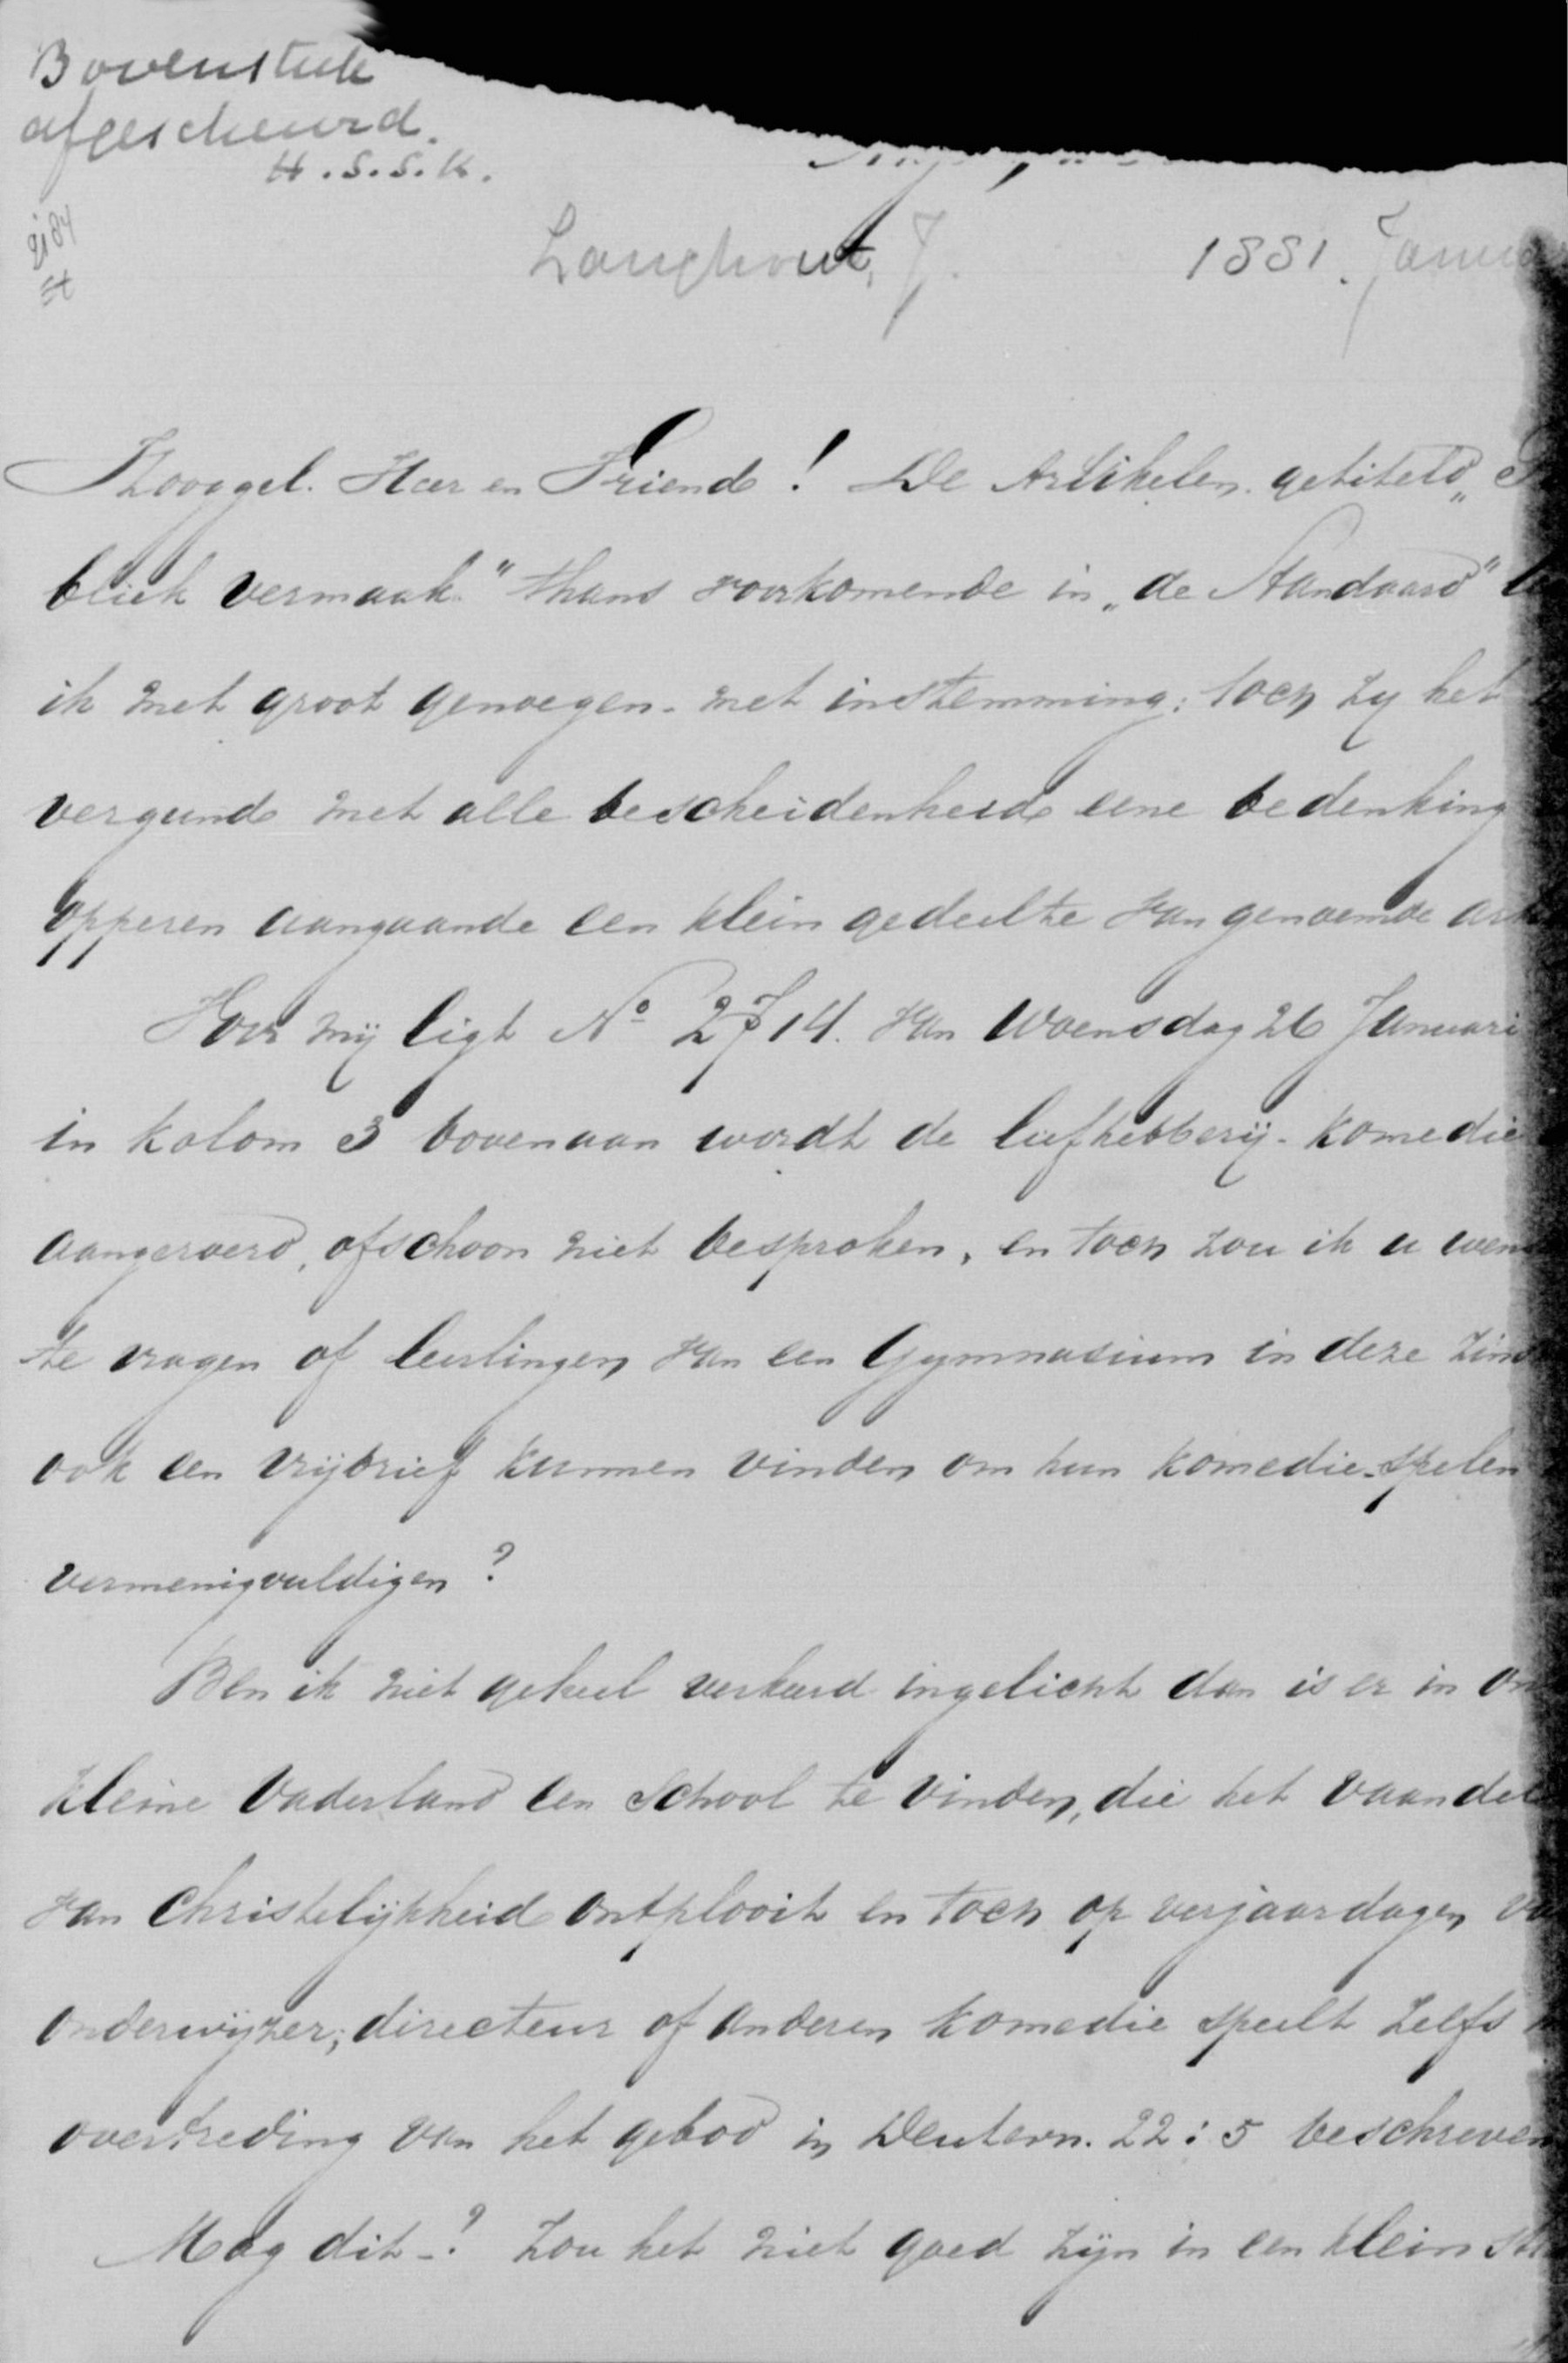 Bovenstuk
afgescheurd.
H.S.S.K.
Langhout, J.
1881. Janua
Hoogel. Heer en Vriend! De Artikelen getiteld „
bliek vermaak" thans voorkomende in „de Standaard"
ik met groot genoegen - met instemming; toch zy het
vergund met alle bescheidenheid eene bedenking
opperen aangaande een klein gedeelte van genoemde
Voor mij ligt No 2714. van Woensdag 26 Januari
in kolom 3 bovenaan wordt de liefhebberij-komedie
aangeroerd, ofschoon niet besproken, en toch zou ik u
te vragen of leerlingen van een Gymnasium in deze
ook een vrijbrief kunnen vinden om hun komedie-spelen
vermenigvuldigen?
Ben ik niet geheel verkeerd ingelicht dan is er in
kleine Vaderland een School te vinden, die het vaandel
van Christelijkheid ontplooit en toch op verjaardagen
onderwijzer, directeur of anderen komedie speelt zelfs
overtreding van het gebod in Deutern. 22:5 beschreven
Mag dit-? Zou het niet goed zijn in een klein